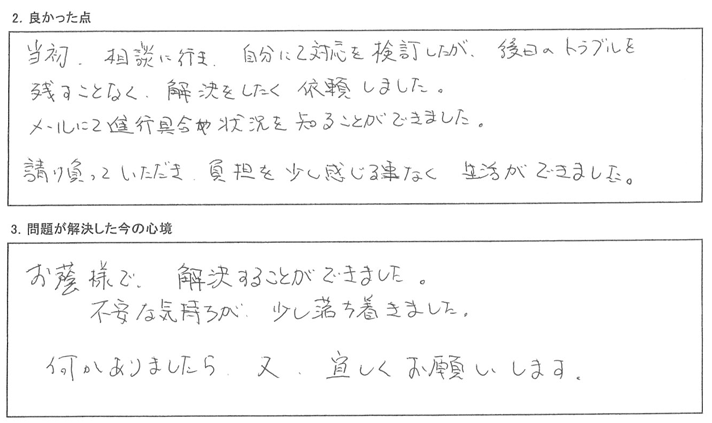 2. 良かった点
当初、相談に行き、自分にて対応を検訂したが、後日のトラブルを
残すことなく、解決をしたく依頼しました。
メールにて進行具合や状況を知ることができました。
請け負っていただき、負担を少し感じる事なく生活ができました。
3. 問題が解決した今の心境
お蔭様で、解決することができました。
不安な気持ちが、少し落ち着きました。
何かありましたら、又、宜しくお願いします。